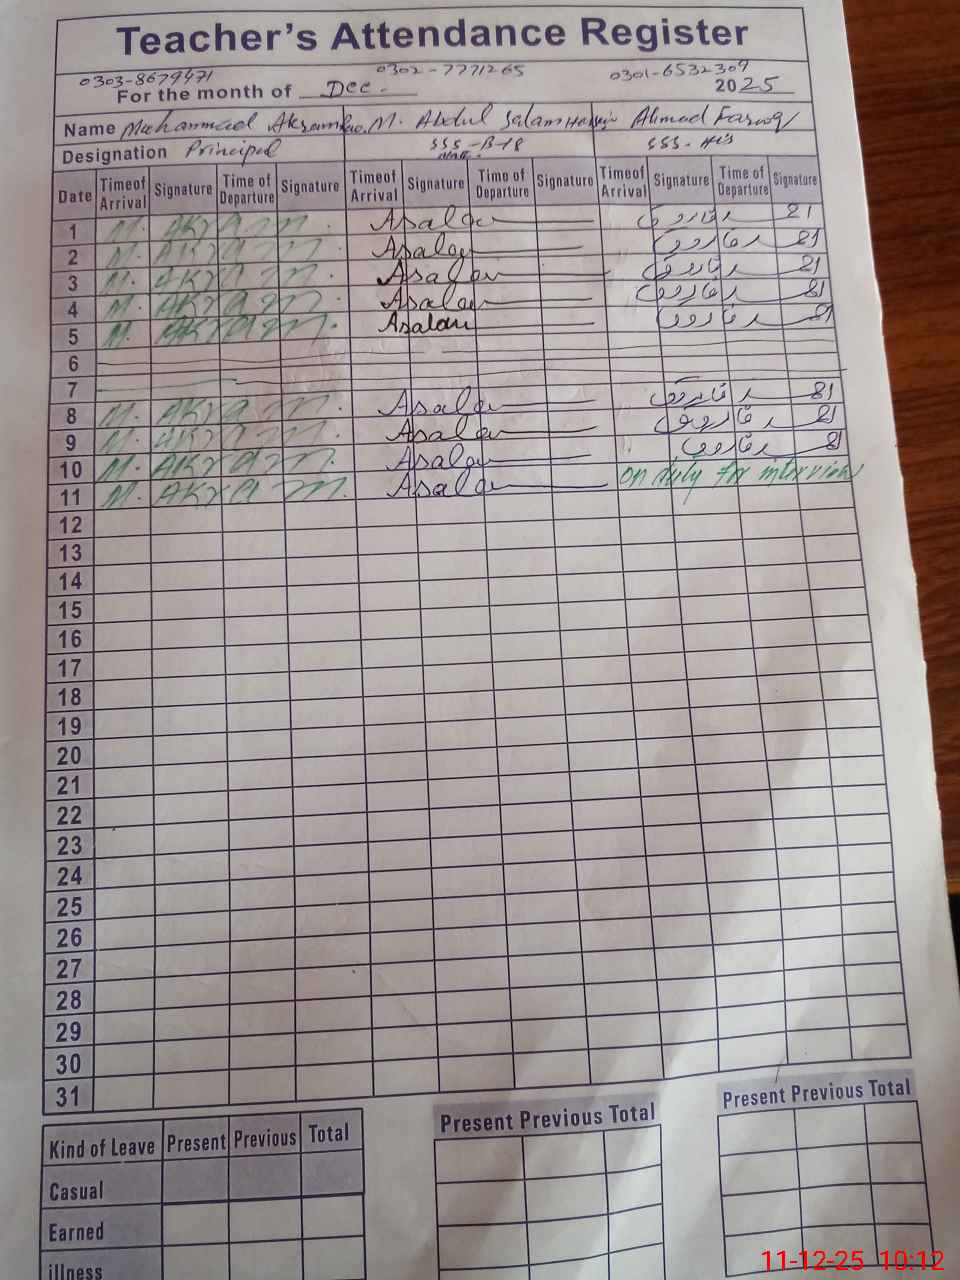 Teacher's Attendance Register
0303-8679471 0302-7771265 0301-6532309
For the month of Dec. 2025
Name Muhammad Akram M. Abdul Salam Ahmad Farooq
Designation Principal SSS-B-18 SSS-
Date Timeof Arrival Signature Time of Departure Signature Timeof Arrival Signature Time of Departure Signature Timeof Arrival Signature Time of Departure Signature
1 M. AKram. Asalam
2 M. AKram. Asalam
3 M. AKram. Asalam
4 M. AKram. Asalam
5 M. AKram. Asalam
6
7
8 M. AKram. Asalam
9 M. AKram. Asalam
10 M. AKram. Asalam
11 M. AKram. Asalam on duty for interview
12
13
14
15
16
17
18
19
20
21
22
23
24
25
26
27
28
29
30
31
Kind of Leave Present Previous Total Present Previous Total Present Previous Total
Casual
Earned
illness
11-12-25 10:12